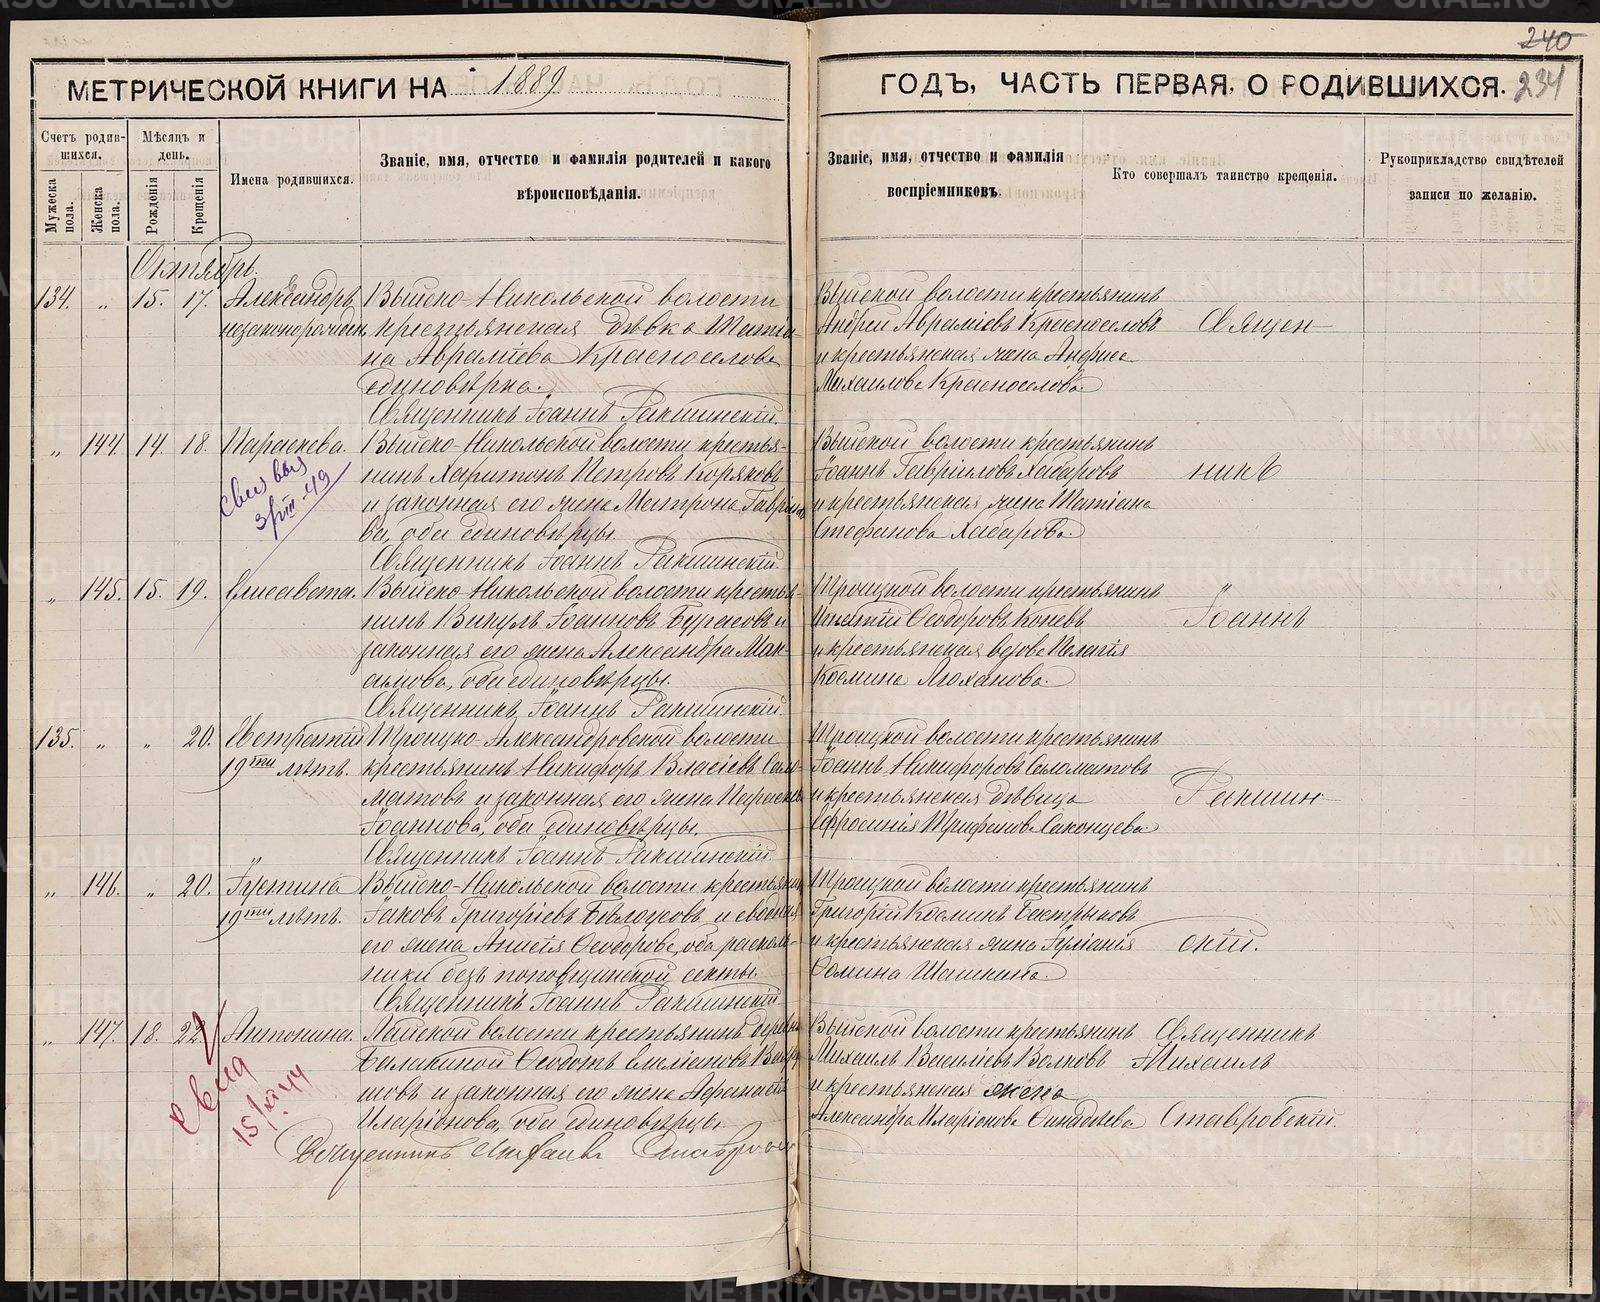 240
234
МЕТРИЧЕСКОЙ КНИГИ НА 1889
ГОДЪ, ЧАСТЬ ПЕРВАЯ, О РОДИВШИХСЯ.
Счетъ родив-
шихся.
Мужеска пола.
Женска пола.
Мѣсяцъ и день.
Рожденія
Крещенія
Имена родившихся.
Званіе, имя, отчество и фамилія родителей и какого
вѣроисповѣданія.
Званіе, имя, отчество и фамилія
воспріемниковъ.
Кто совершалъ таинство крещенія.
Рукоприкладство свидѣтелей
записи по желанію.
Октябрь.
134. „ 15. 17. Александръ Выйско-Никольской волости
незаконорожден. крестьянская дѣвка Татіа-
на Авраміева Красноселова
единовѣрка.
Священникъ Іоаннъ Ракшинскій.
Выйской волости крестьянинъ
Андрей Авраміевъ Красноселовъ
и крестьянская жена
Михаилова Красноселова.
Священ-
„ 144. 14. 18. Параскева. Выйско-Никольской волости крестья-
нинъ Харитонъ Петровъ Коряковъ
и законная его жена Матрона Гаврило-
ва, оба единовѣрцы.
Священникъ Іоаннъ Ракшинскій.
3/VIII-49
Выйской волости крестьянинъ
Іоаннъ Гавріиловъ Хабаровъ
и крестьянская жена Татіана
Стефанова Хабарова.
никъ
„ 145. 15. 19. Елисавета. Выйско-Никольской волости крестья-
нинъ Викулъ Іоанновъ и
законная его жена Александра Мак-
симова, оба единовѣрцы.
Священникъ Іоаннъ Ракшинскій.
Троицкой волости крестьянинъ
Игнатій Ѳеодоровъ Коневъ
и крестьянская вдова Пелагія
Космина
Іоаннъ
135. „ „ 20. Евстрепій Троицко-Александровской волости
19ти лѣтъ. крестьянинъ Никифоръ Власіевъ Соло-
матовъ и законная его жена Параскева
Іоаннова, оба единовѣрцы.
Священникъ Іоаннъ Ракшинскій.
Троицкой волости крестьянинъ
Іоаннъ Никифоровъ Соломатовъ
и крестьянская дѣвица
Евфросинія Трифонова
Ракшин-
„ 146. „ 20. Іустина Выйско-Никольской волости крестьянинъ
19ти лѣтъ. Іаковъ Григоріевъ Бѣлоусовъ и сводная
его жена Анисія Ѳеодорова, оба расколь-
ники безъ поповщинской секты.
Священникъ Іоаннъ Ракшинскій
Троицкой волости крестьянинъ
Григорій Косминъ
и крестьянская жена Іуліанія
Ѳомина Шашкина.
скій.
„ 147. 18. 22. Антонина. Лайской волости крестьянинъ деревни
Балакиной Ѳеодотъ
и законная его жена
Иларіонова, оба единовѣрцы
Священникъ Михаилъ Ставровскій
15/XI 44
Выйской волости крестьянинъ
Михаилъ Василіевъ Волковъ
и крестьянская жена
Александра Иларіонова
Священникъ
Михаилъ
Ставровскій.
METRIKI.GASO-URAL.RU